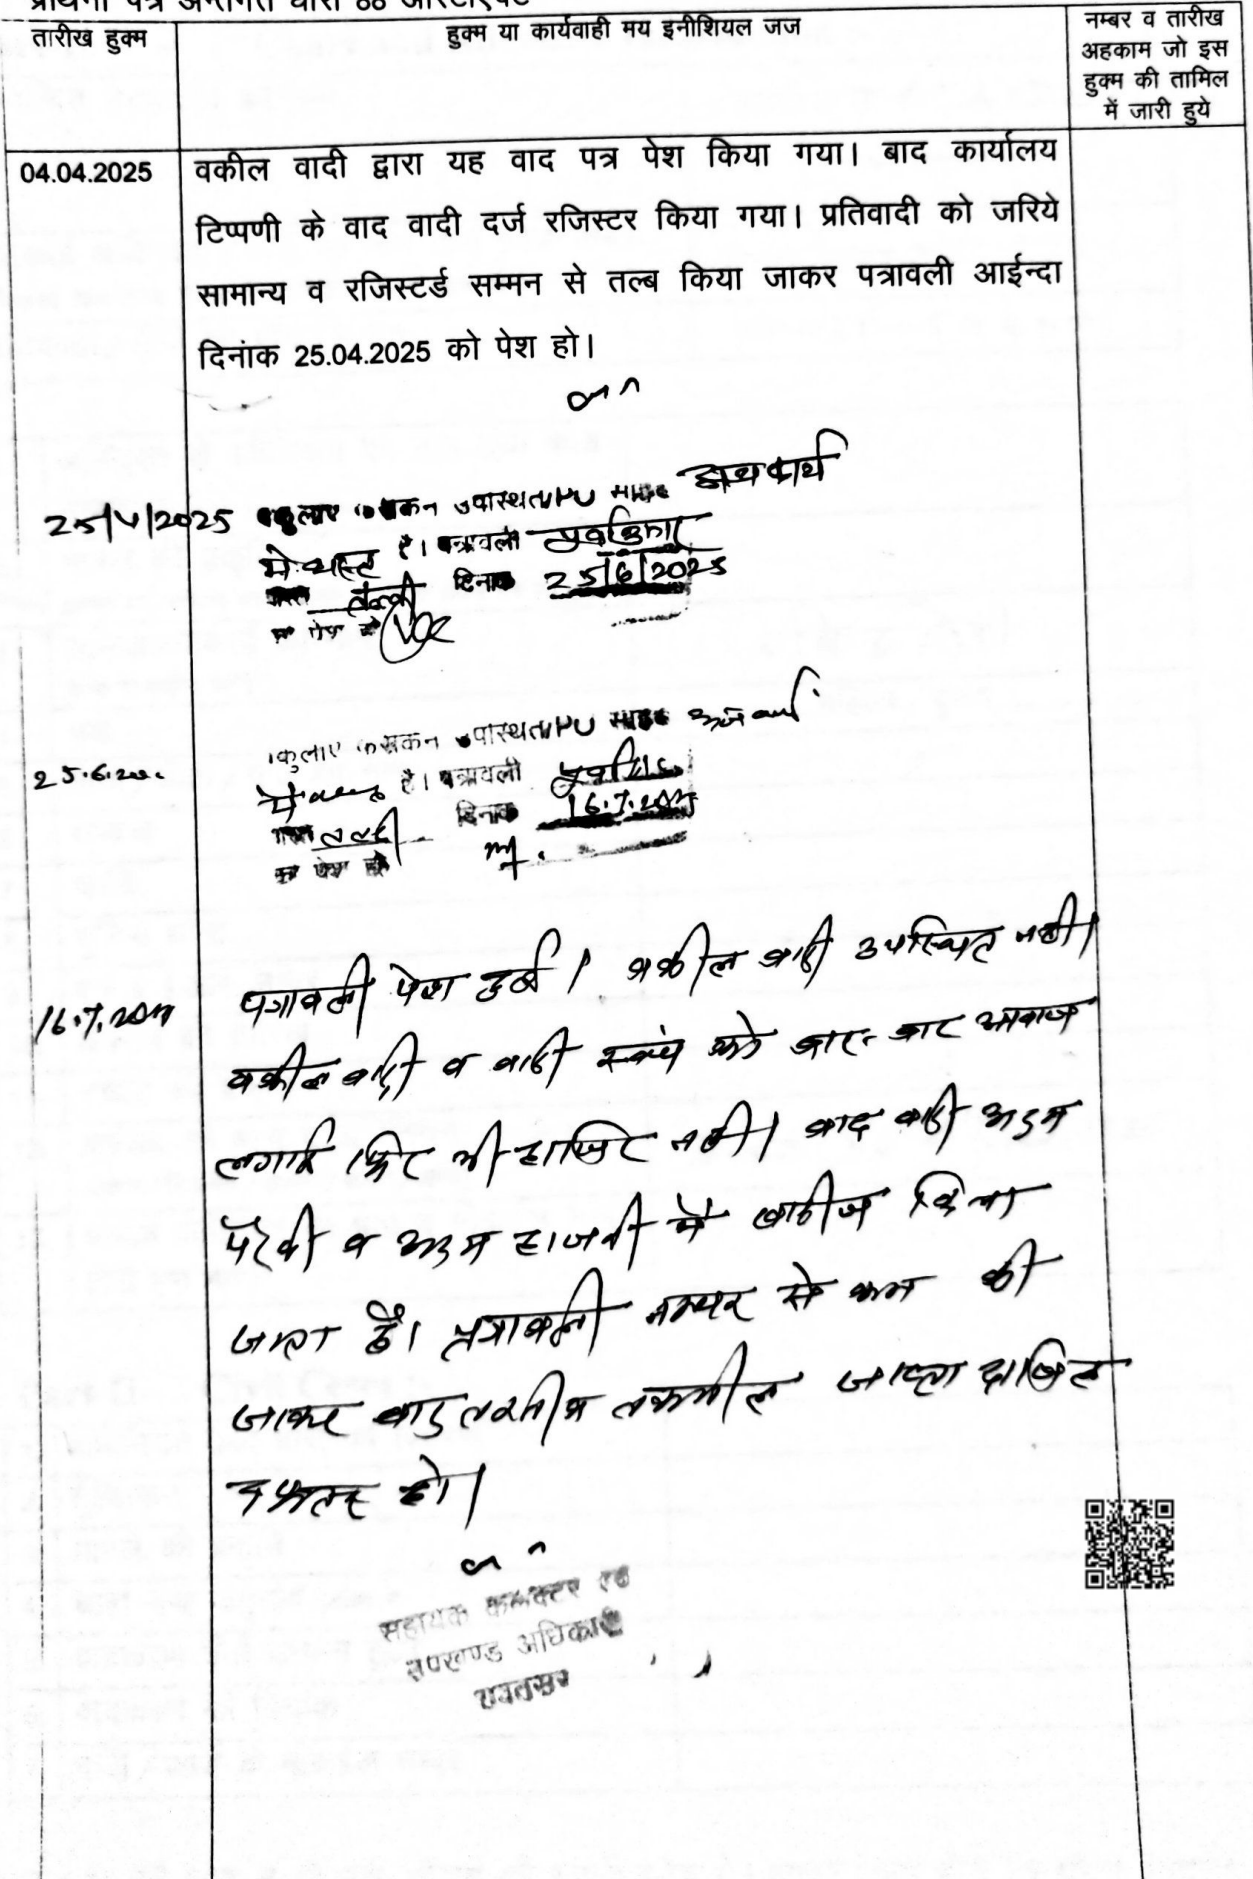 प्रार्थना पत्र अन्तर्गत धारा 88 आरटीएक्ट
तारीख हुक्म
हुक्म या कार्यवाही मय इनीशियल जज
नम्बर व तारीख
अहकाम जो इस
हुक्म की तामिल
में जारी हुये
04.04.2025
वकील वादी द्वारा यह वाद पत्र पेश किया गया। बाद कार्यालय
टिप्पणी के वाद वादी दर्ज रजिस्टर किया गया। प्रतिवादी को जरिये
सामान्य व रजिस्टर्ड सम्मन से तल्ब किया जाकर पत्रावली आईन्दा
दिनांक 25.04.2025 को पेश हो।
25/4/2025
उपस्थित। PO
में व्यस्त है। पत्रावली
तलबी दिनांक 25/6/2025
पेश हो
25.6.20
उपस्थित। PO
में है। पत्रावली
तलबी दिनांक 16.7.2025
पेश हो
16.7.2025
पत्रावली पेश हुई। वकील वादी उपस्थित नही।
वकील वादी व वादी स्वयं को बार-बार आवाज
लगाई फिर भी हाजिर नही। वाद वादी अदम
पैरवी व अदम हाजरी में खारीज किया
जाता है। पत्रावली नम्बर से कम की
जाकर बाद तरतीब तकमील जाब्ता दाखिल
दफ्तर हो।
सहायक कलक्टर एवं
उपखण्ड अधिकारी
रावतसर